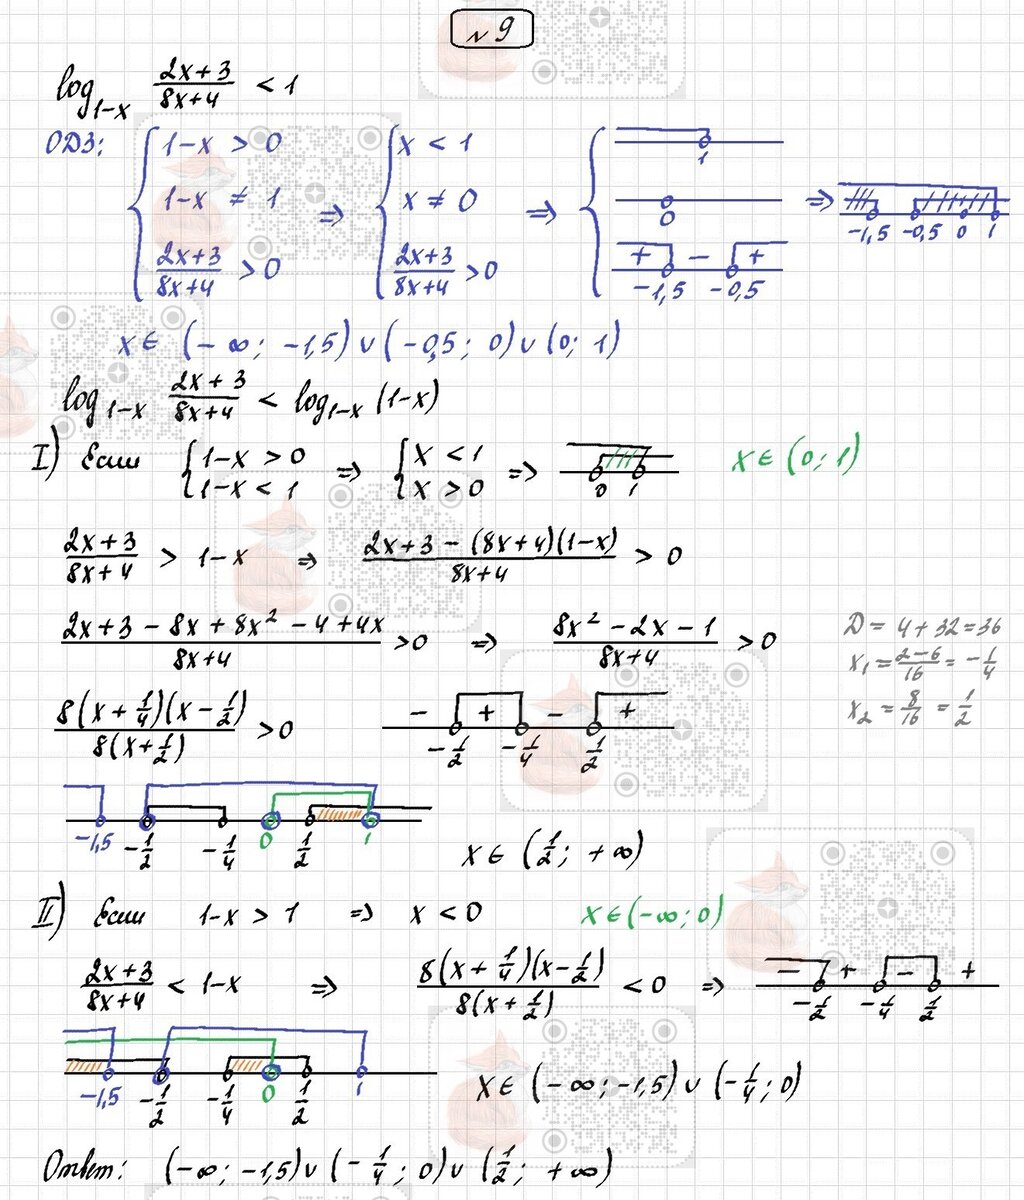 № 9
log_{1-x} (2x+3)/(8x+4) < 1
ОДЗ: { 1-x > 0 { x < 1 1
1-x ≠ 1 ⇒ x ≠ 0 ⇒ 0 ⇒ -1,5 -0,5 0 1
(2x+3)/(8x+4) > 0 (2x+3)/(8x+4) > 0 + - + -1,5 -0,5
x ∈ (-∞; -1,5) ∪ (-0,5; 0) ∪ (0; 1)
log_{1-x} (2x+3)/(8x+4) < log_{1-x} (1-x)
I) Если { 1-x > 0 ⇒ { x < 1 ⇒ 0 1 x ∈ (0; 1)
1-x < 1 x > 0
(2x+3)/(8x+4) > 1-x ⇒ (2x+3 - (8x+4)(1-x))/(8x+4) > 0
(2x+3 - 8x + 8x² - 4 + 4x)/(8x+4) > 0 ⇒ (8x² - 2x - 1)/(8x+4) > 0
D = 4+32=36
x₁ = (2-6)/16 = -1/4
x₂ = 8/16 = 1/2
8(x+1/4)(x-1/2)/(8(x+1/2)) > 0 - + - + -1/2 -1/4 1/2
-1,5 -1/2 -1/4 0 1/2 1
x ∈ (1/2; +∞)
II) Если 1-x > 1 ⇒ x < 0 x ∈ (-∞; 0)
(2x+3)/(8x+4) < 1-x ⇒ 8(x+1/4)(x-1/2)/(8(x+1/2)) < 0 ⇒ - + - + -1/2 -1/4 1/2
-1,5 -1/2 -1/4 0 1/2 1
x ∈ (-∞; -1,5) ∪ (-1/4; 0)
Ответ: (-∞; -1,5) ∪ (-1/4; 0) ∪ (1/2; +∞)